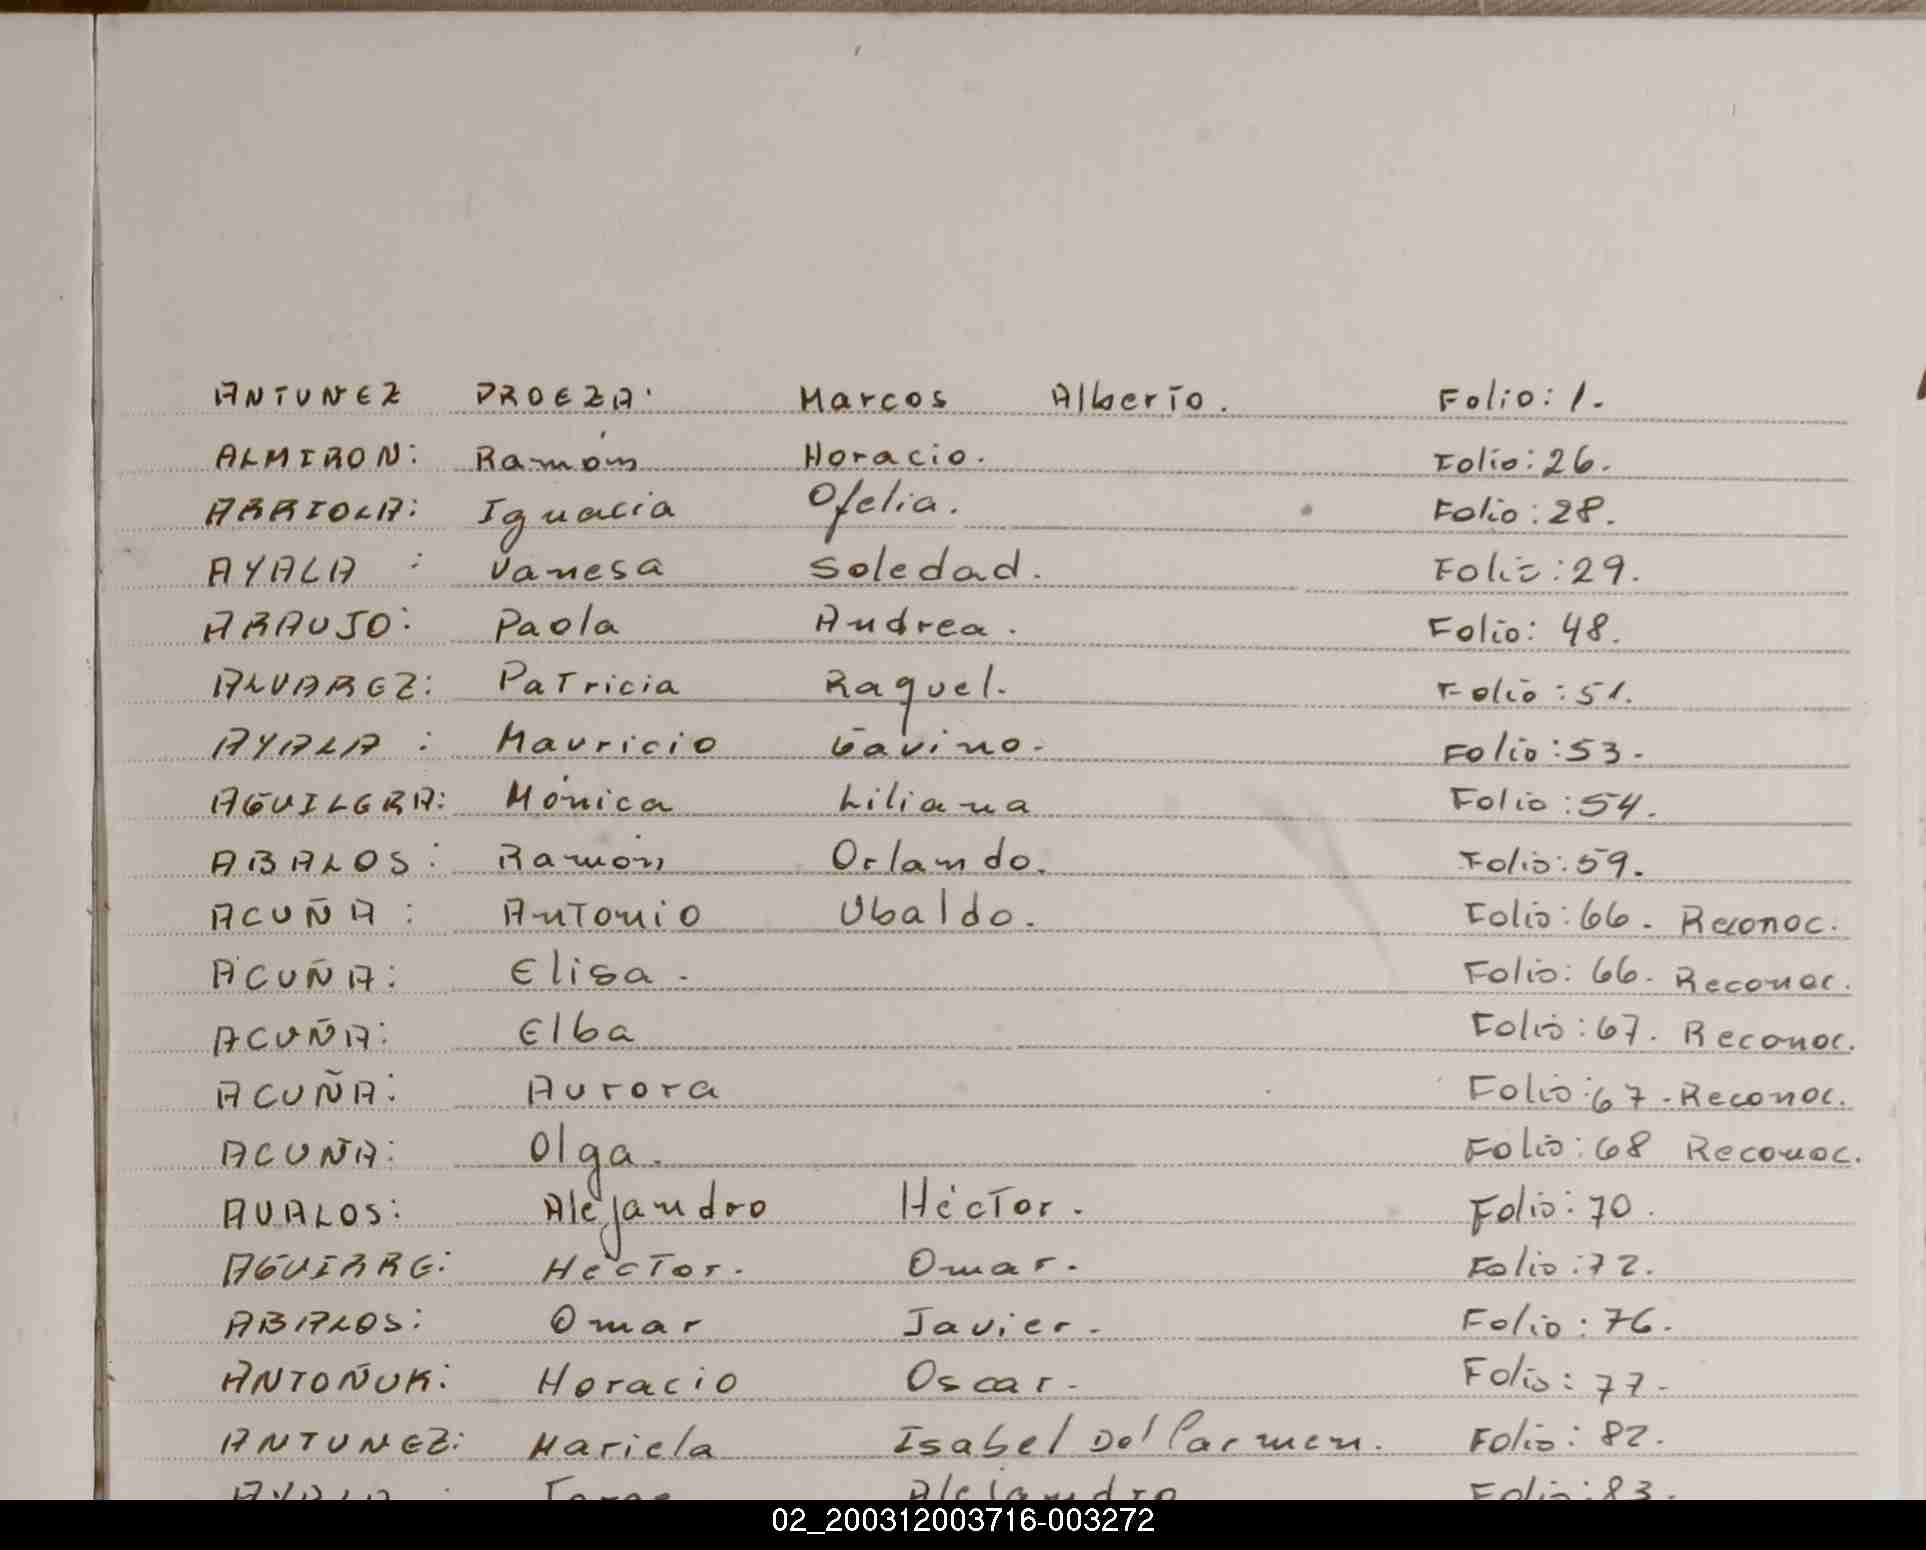 ANTUNEZ PROEZA. Marcos Alberto. Folio: 1.
ALMIRON: Ramón Horacio. Folio: 26.
ARRIOLA: Ignacia Ofelia. Folio: 28.
AYALA : Vanesa Soledad. Folio: 29.
ARAUJO: Paola Andrea. Folio: 48.
ALVAREZ: Patricia Raquel. Folio: 51.
AYALA : Mauricio Gavino. Folio: 53.
AGUILERA: Mónica Liliana Folio: 54.
ABALOS: Ramón Orlando. Folio: 59.
ACUÑA : Antonio Ubaldo. Folio: 66. Reconoc.
ACUÑA: Elisa. Folio: 66. Reconoc.
ACUÑA: Elba Folio: 67. Reconoc.
ACUÑA: Aurora Folio: 67. Reconoc.
ACUÑA: Olga. Folio: 68 Reconoc.
AVALOS: Alejandro Héctor. Folio: 70.
AGUIRRE: Héctor. Omar. Folio: 72.
ABALOS: Omar Javier. Folio: 76.
ANTOÑUK: Horacio Oscar. Folio: 77.
ANTUNEZ: Mariela Isabel Del Carmen. Folio: 82.
AYALA : Jorge Alejandro Folio: 83.
02_200312003716-003272